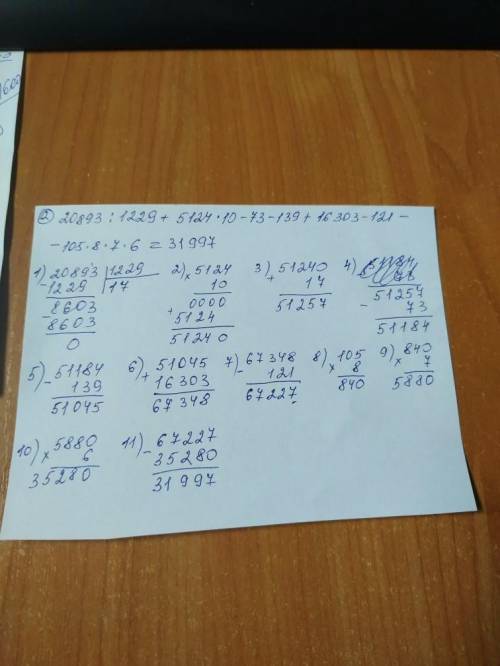 ② 20893 : 1229 + 5124 · 10 - 73 - 139 + 16303 - 121 -
- 105 · 8 · 7 · 6 = 31997
1) 20893 | 1229
- 1229 | 17
- 8603
8603
0
2) × 5124
10
0000
+ 5124
51240
3) + 51240
17
51257
4)
- 51257
73
51184
5) - 51184
139
51045
6) + 51045
16303
67348
7) - 67348
121
67227
8) × 105
8
840
9) × 840
7
5880
10) × 5880
6
35280
11) - 67227
35280
31997